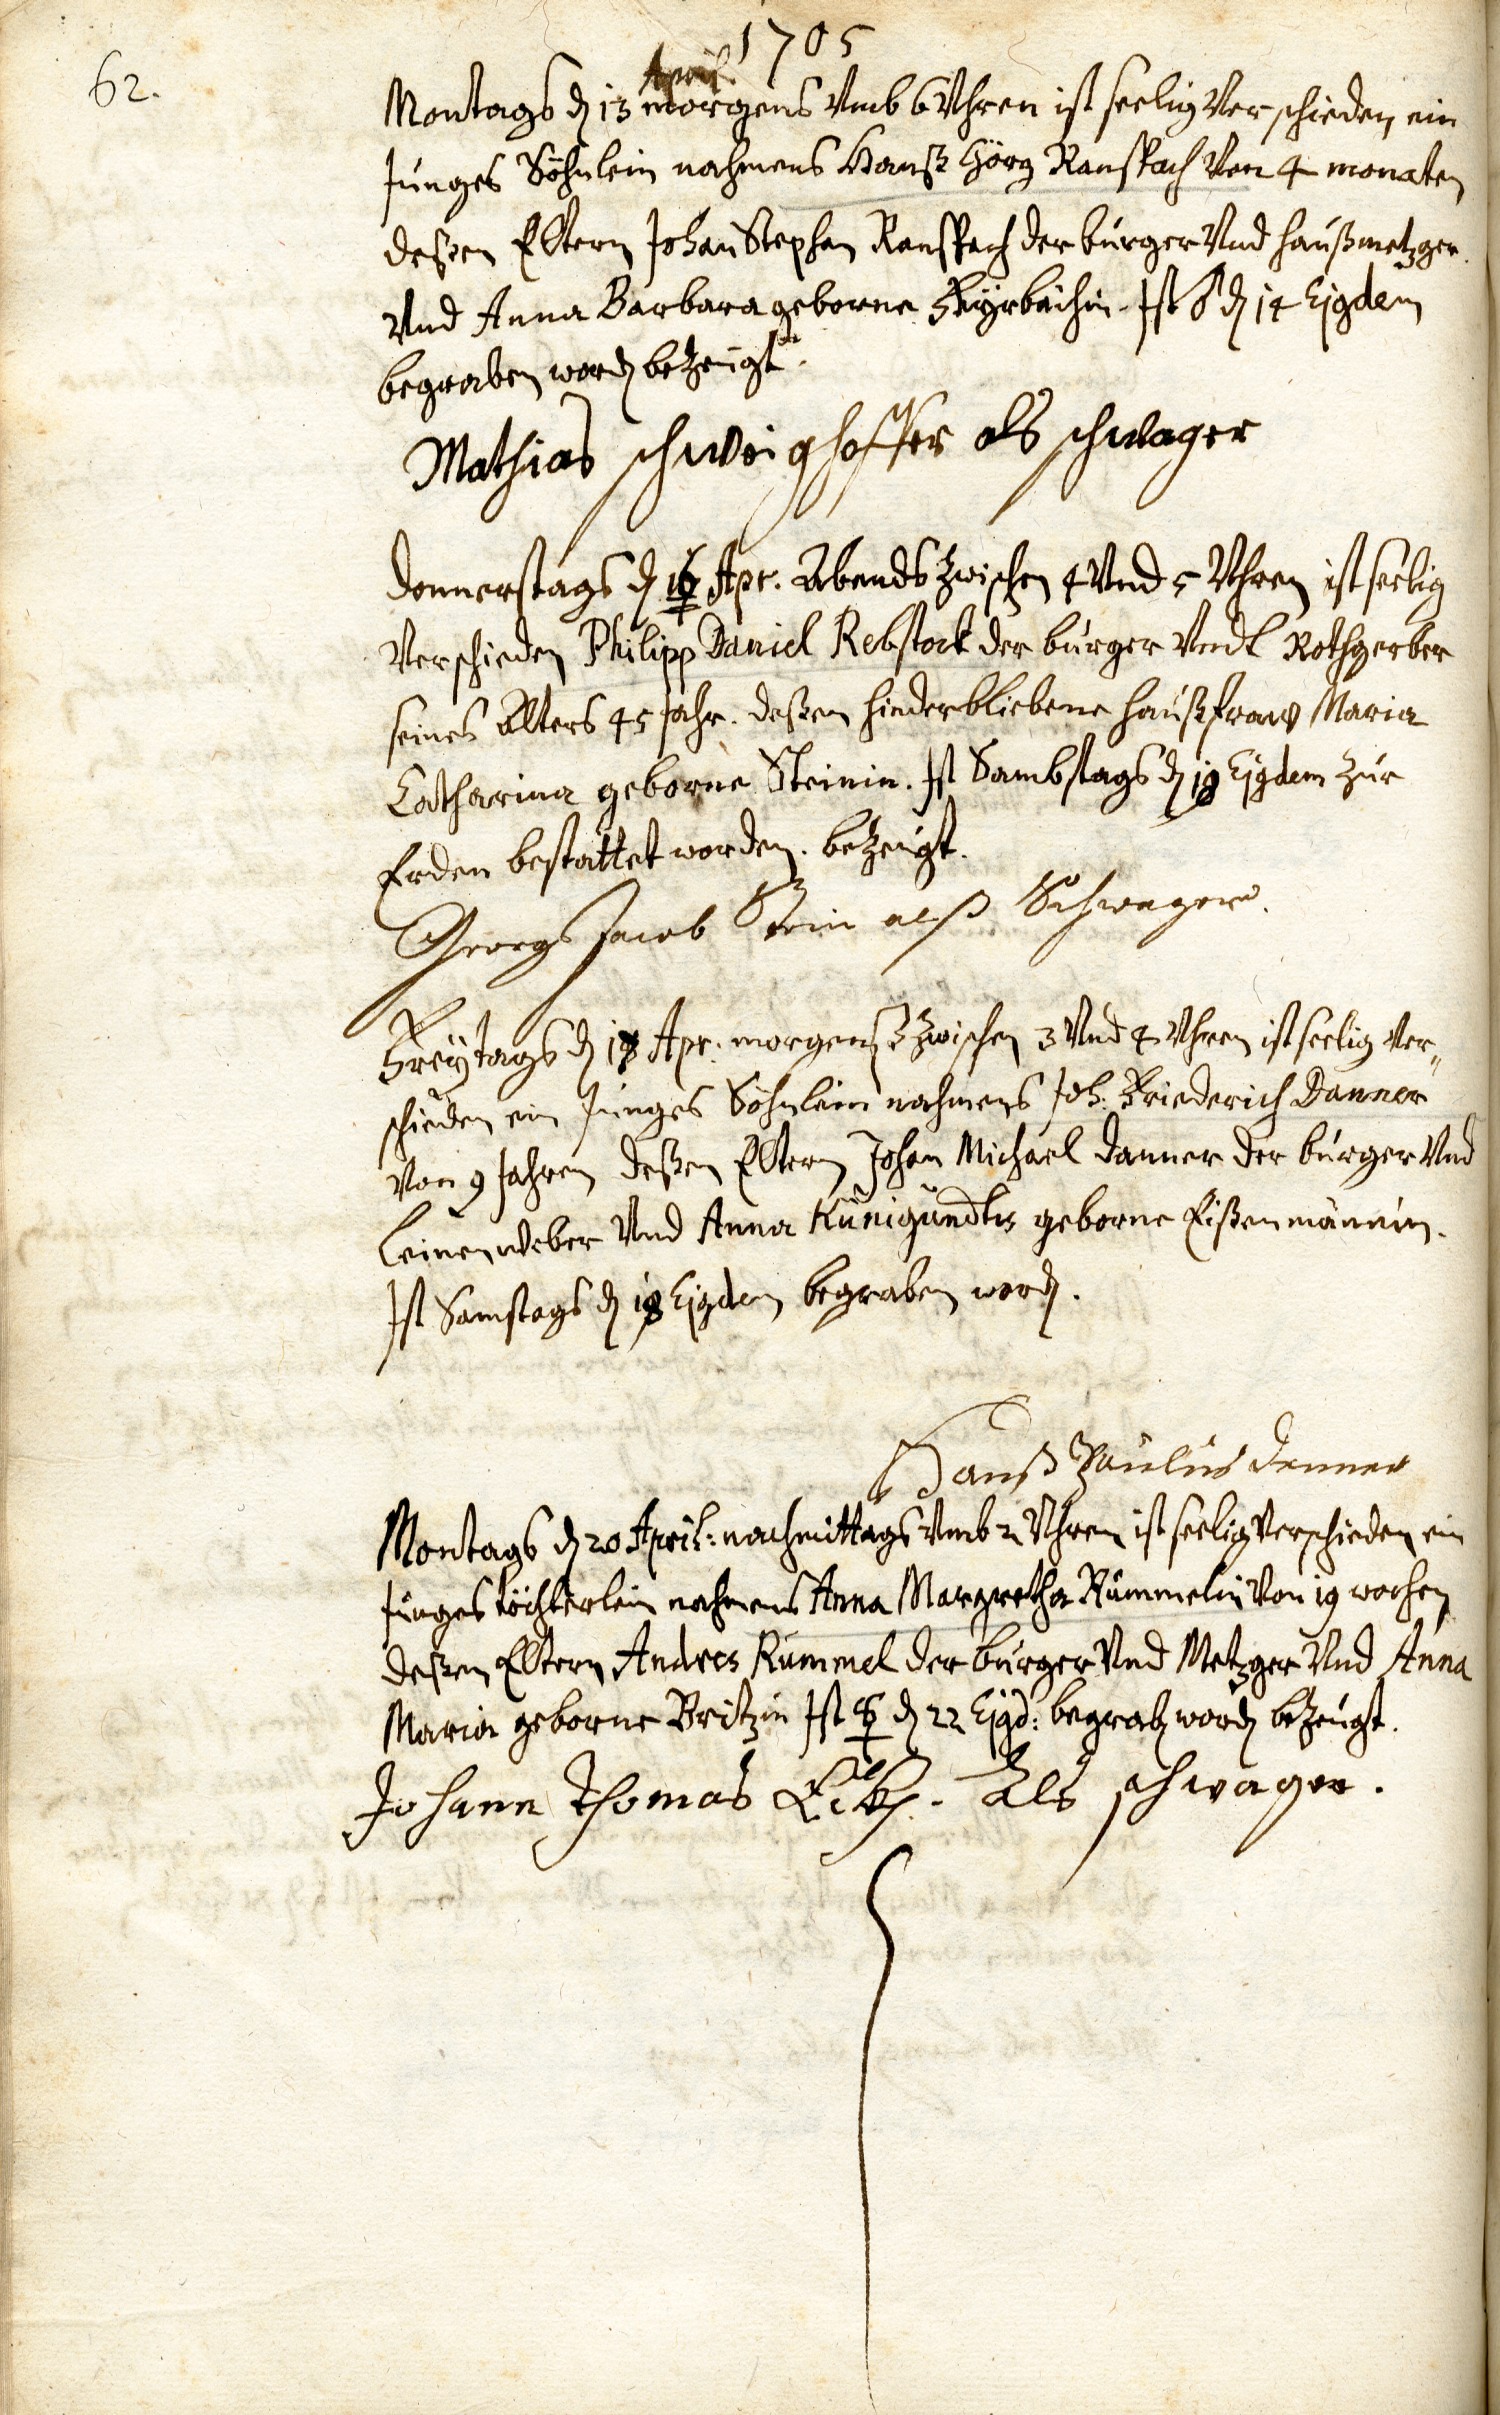 1705
62.
April
Montags d 13 morgens Vmb 6 Vhren ist seelig Verschieden ein
Junges Söhnlein nahmens Hanß Görg Ranspach Von 4 monaten
deßen Eltern Johan Stephan Ranspach der burger Vnd haußmetzger
Vnd Anna Barbara geborne Ist ♂ d 14 Ejgdem
begraben word bezeugt.
Mathias schweighoffer als schwager
Donnerstags d 16 Apr. Abends zwischen 4 Vnd 5 Vhren ist seelig
Verschieden Philipp Daniel Rebstock der burger Vndt Rothgerber
seines Alters 45 Jahr. deßen hinderbliebene haußfraw Maria
Catharina geborne Steinin. Ist Sambstags d 18 Ejgdem zur
Erden bestattet worden. bezeugt.
Georg Jacob Stein alß Schwager.
Freytags d 17 Apr. morgenß zwischen 3 Vnd 4 Vhren ist seelig Ver„
schieden ein Junges Söhnlein nahmens Joh. Friederich Danner
Von 9 Jahren deßen Eltern Johan Michael Danner der burger Vnd
Leinenweber Vnd Anna Kunigundts geborne Eißenmännin.
Ist Samstags d 18 Ejgdem begraben word.
Hanß Paulus Denner
Montags d 20 April: nachmittags Vmb 2 Vhren ist seelig Verschieden ein
Junges töchterlein nahmens Anna Margretha Rummelin Von 19 wochen
deßen Eltern Andres Rummel der burger Vnd Metzger Vnd Anna
Maria geborne Britzin Ist d 22 Ejgd: begrab word bezeugt.
Johann Thomas Als schwager.